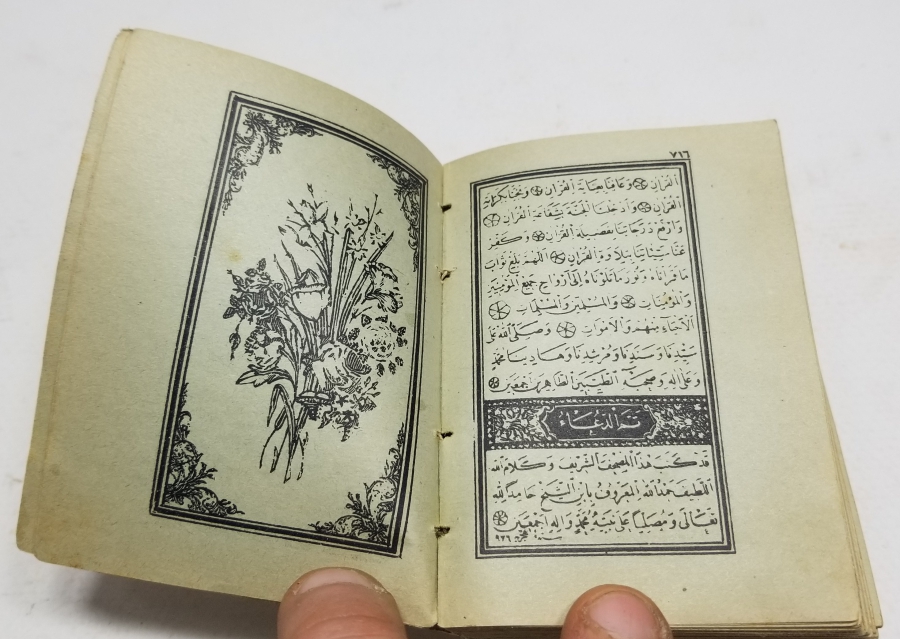 ٧١٦
القرآن وعافنا بعناية القرآن ونجنا بكرامة
القرآن وأدخلنا الجنة بشفاعة القرآن
وارفع درجاتنا بفضيلة القرآن وكفر
عنا سيئاتنا بتلاوة القرآن اللهم بلغ ثواب
ما قرأناه ونور ما تلوناه إلى أرواح جميع المؤمنين
والمؤمنات والمسلمين والمسلمات
الأحياء منهم والأموات وصلى الله على
سيدنا وسندنا ومرشدنا وهادينا محمد
وعلى آله وصحبه الطيبين الطاهرين أجمعين
تم الدعاء
قد كتب هذا المصحف الشريف وكلام الله
اللطيف حمد الله المعروف بابن الشيخ حامدا لله
تعالى ومصليا على نبيه محمد وآله أجمعين
سنة ٩٢٦